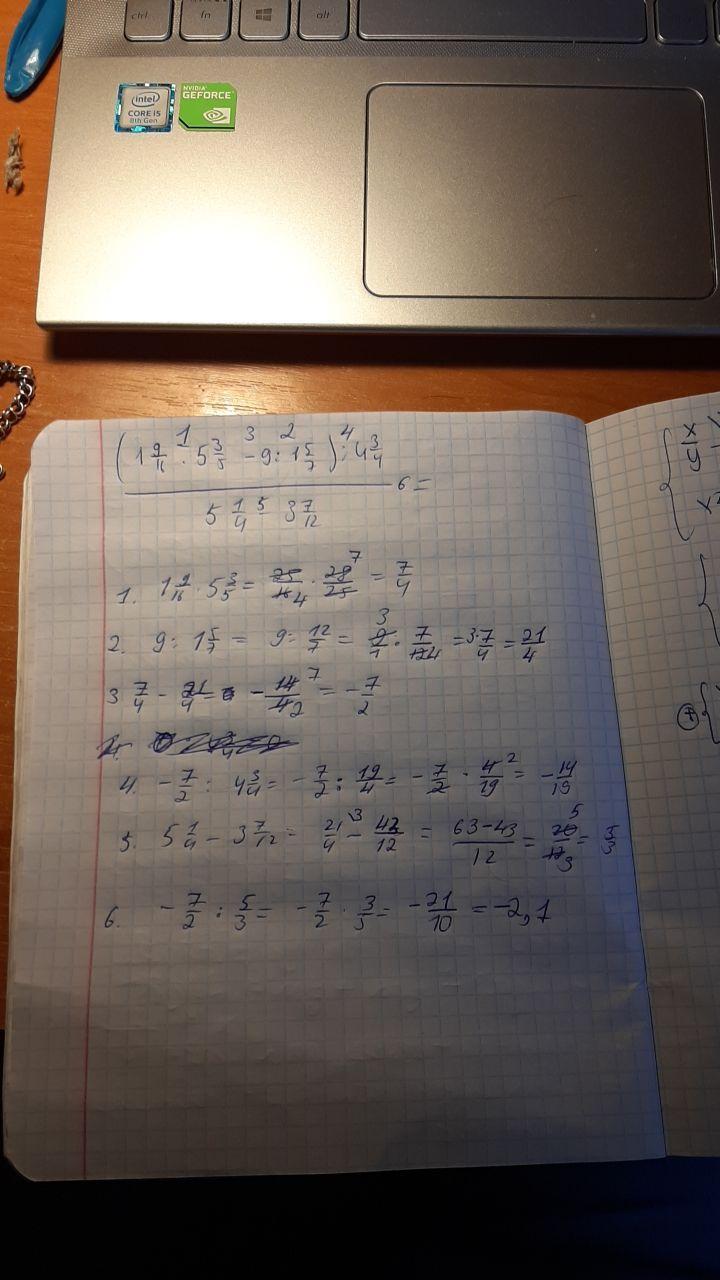 ctrl fn alt
intel CORE i5 8th Gen
NVIDIA GEFORCE
(1 9/16 · 5 3/5 - 9 : 1 5/7) : 4 3/4
1 3 2 4
6 =
5 1/4 - 3 7/12
5
1. 1 9/16 · 5 3/5 = 25/16 4 · 28 7/25 = 7/4
2. 9 : 1 5/7 = 9 : 12/7 = 9 3/1 · 7/12 4 = 3·7/4 = 21/4
3 7/4 - 21/4 = - 14 7/4 2 = - 7/2
4. - 7/2 : 4 3/4 = - 7/2 : 19/4 = - 7/2 · 4 2/19 = - 14/19
5. 5 1/4 - 3 7/12 = 21 \3/4 - 43/12 = 63-43/12 = 20 5/12 3 = 5/3
6. - 7/2 : 5/3 = - 7/2 · 3/5 = - 21/10 = -2,1
x/y